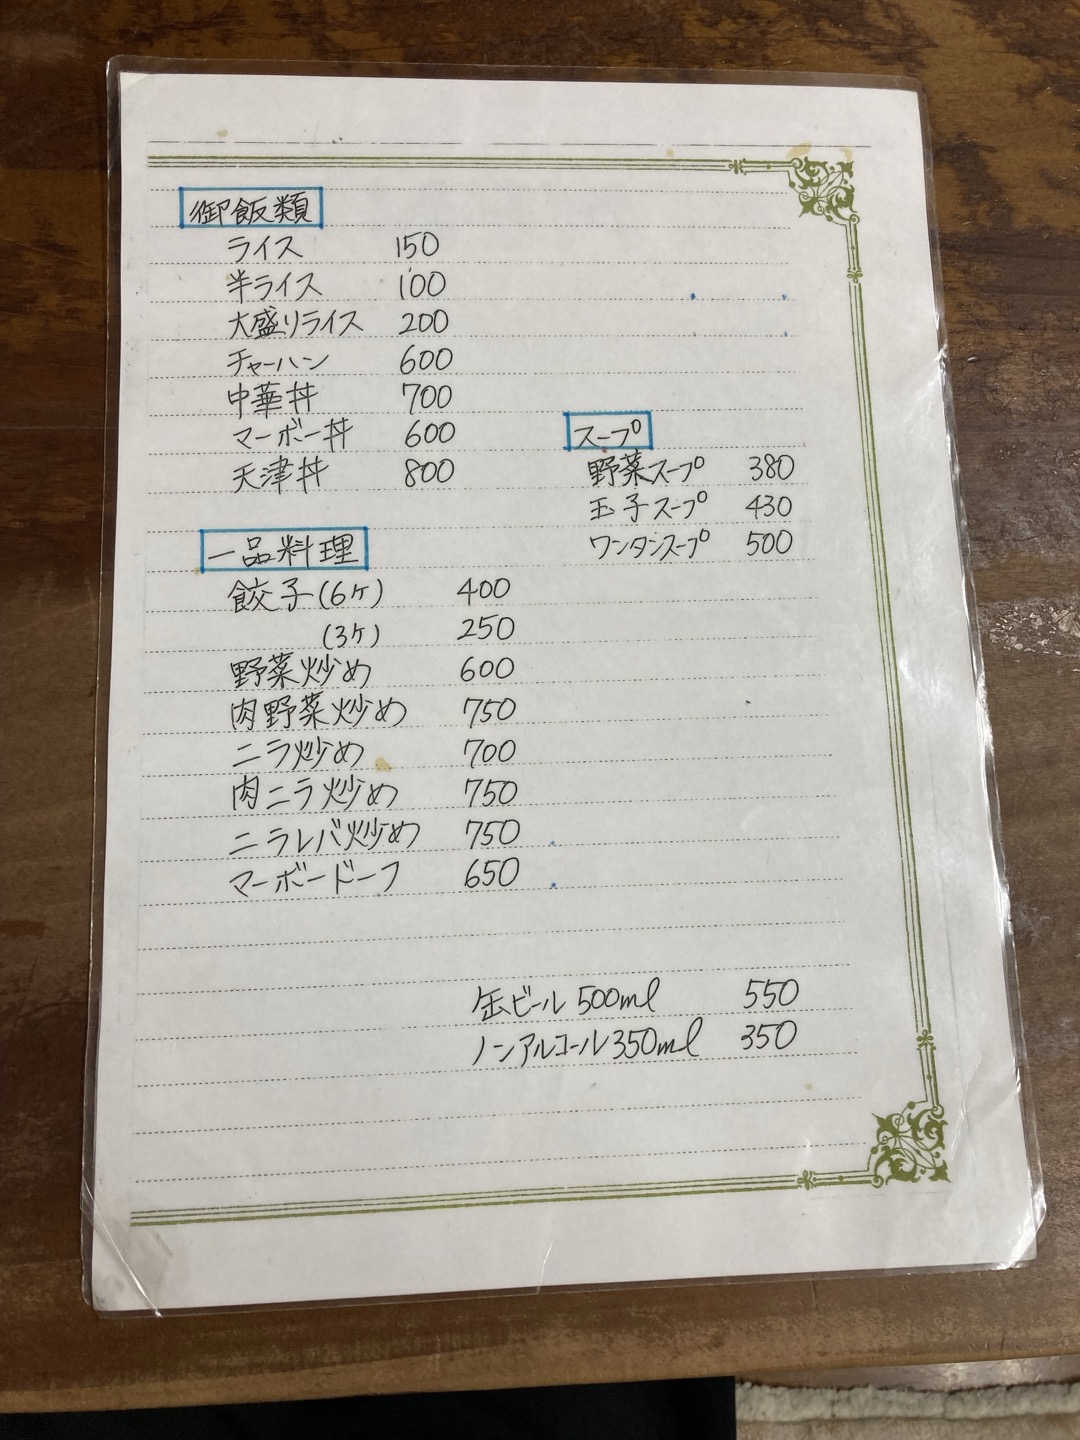 御飯類
ライス 150
半ライス 100
大盛りライス 200
チャーハン 600
中華丼 700
マーボー丼 600
天津丼 800
スープ
野菜スープ 380
玉子スープ 430
ワンタンスープ 500
一品料理
餃子(6ケ) 400
(3ケ) 250
野菜炒め 600
肉野菜炒め 750
ニラ炒め 700
肉ニラ炒め 750
ニラレバ炒め 750
マーボードーフ 650
缶ビール 500ml 550
ノンアルコール 350ml 350